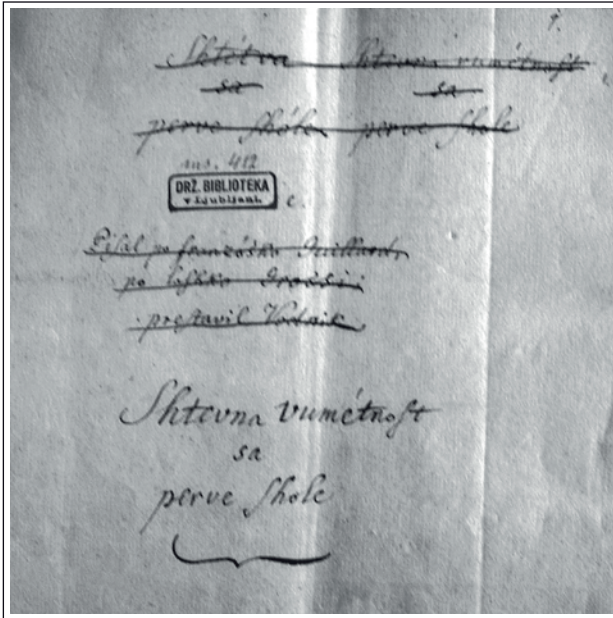 1.
Shtétva Shtevna vumétnost
sa sa
perve shóle perve shole
ms. 412
DRŽ. BIBLIOTEKA
v Ljubljani.
c.
Pisal po franzósko Guillard,
po lashko
prestavil Vodnik.
Shtevna vumétnost
sa
perve shole